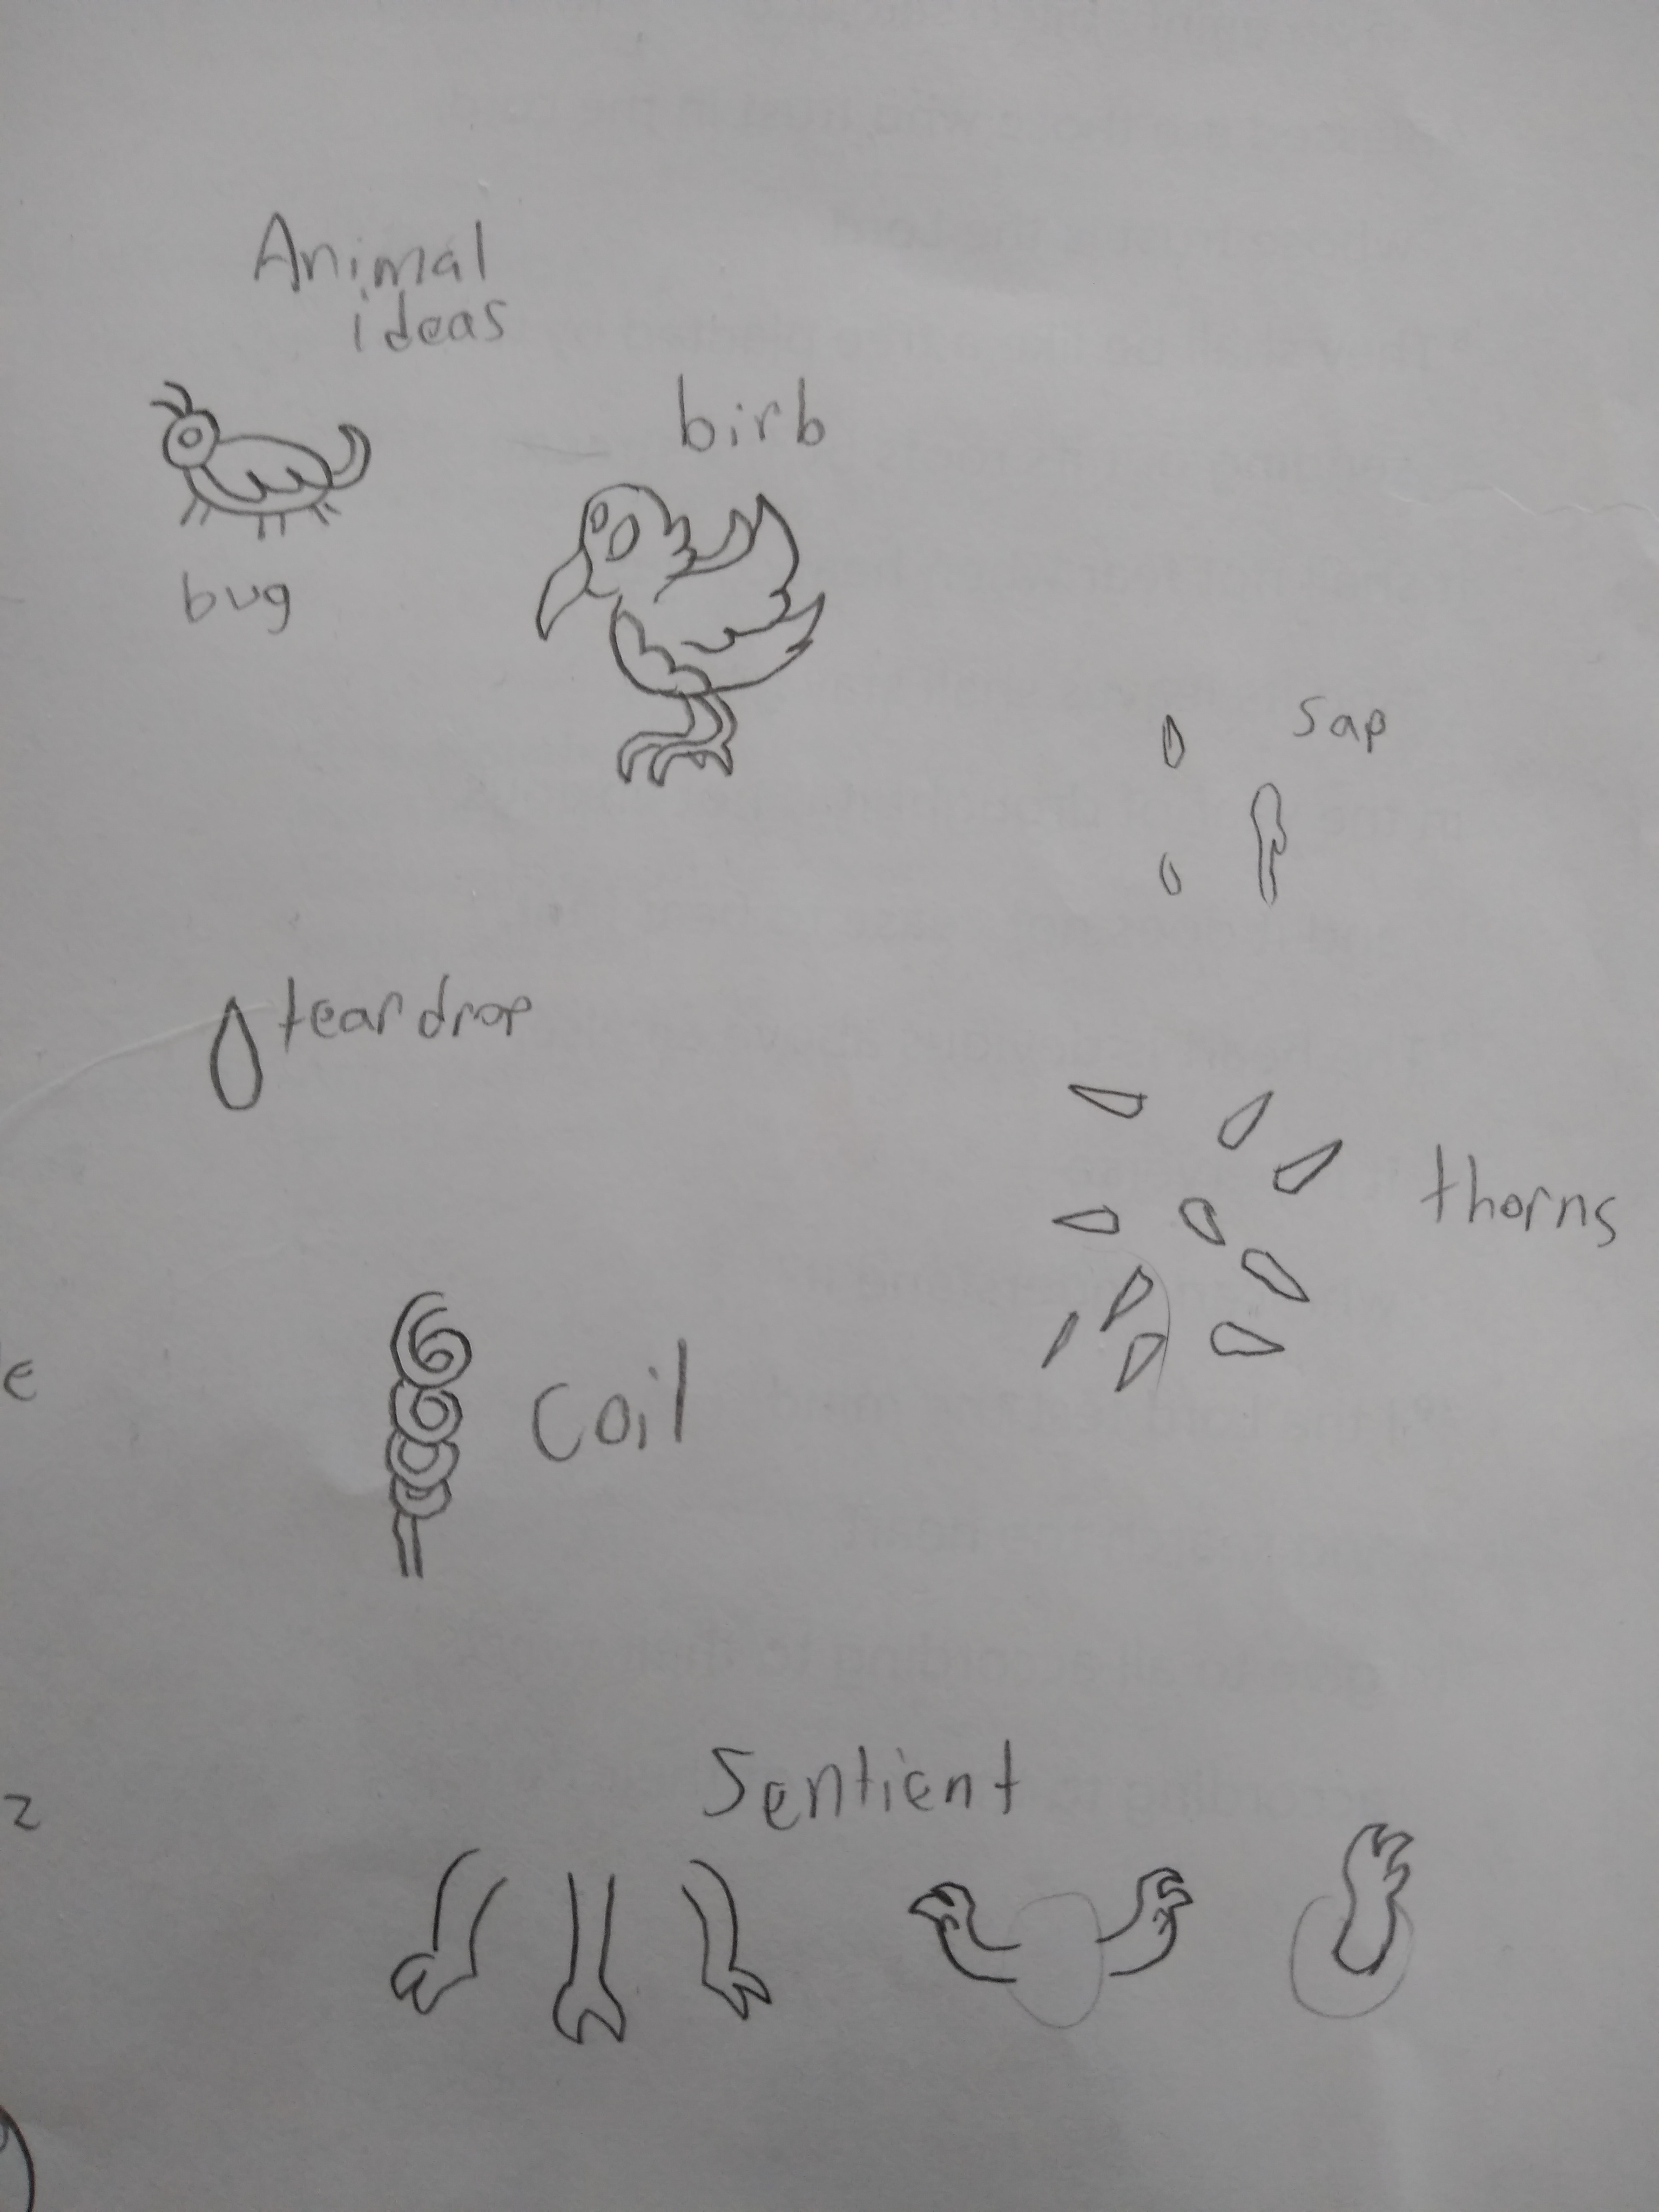 Animal
ideas
birb
bug
sap
tear drop
thorns
coil
e
Sentient
2